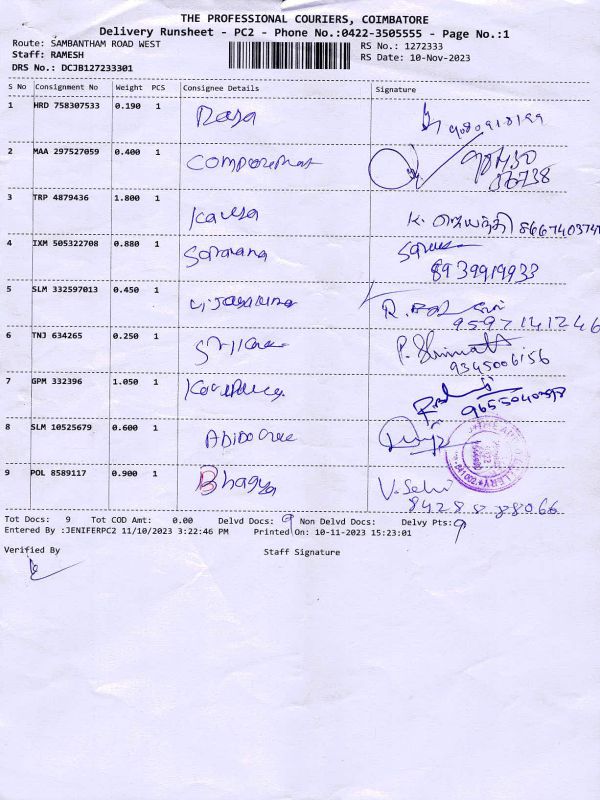 THE PROFESSIONAL COURIERS, COIMBATORE
Delivery Runsheet - PC2 - Phone No.:0422-3505555 - Page No.:1
Route: SAMBANTHAM ROAD WEST RS No.: 1272333
Staff: RAMESH RS Date: 10-Nov-2023
DRS No.: DCJB127233301
S No Consignment No Weight PCS Consignee Details Signature
1 HRD 758307533 0.190 1 Raja
2 MAA 297527059 0.400 1 98430
36738
3 TRP 4879436 1.800 1 Kavya K. ஜெயந்தி 8667403747
4 IXM 505322708 0.880 1 Saravana
8939919933
5 SLM 332597013 0.450 1 R.
9597141246
6 TNJ 634265 0.250 1 P.
9345006156
7 GPM 332396 1.050 1
9655040398
8 SLM 10525679 0.600 1
9 POL 8589117 0.900 1 Bhagya V. Selvi
Tot Docs: 9 Tot COD Amt: 0.00 Delvd Docs: 9 Non Delvd Docs: Delvy Pts: 9
Entered By :JENIFERPC2 11/10/2023 3:22:46 PM Printed On: 10-11-2023 15:23:01
Verified By Staff Signature